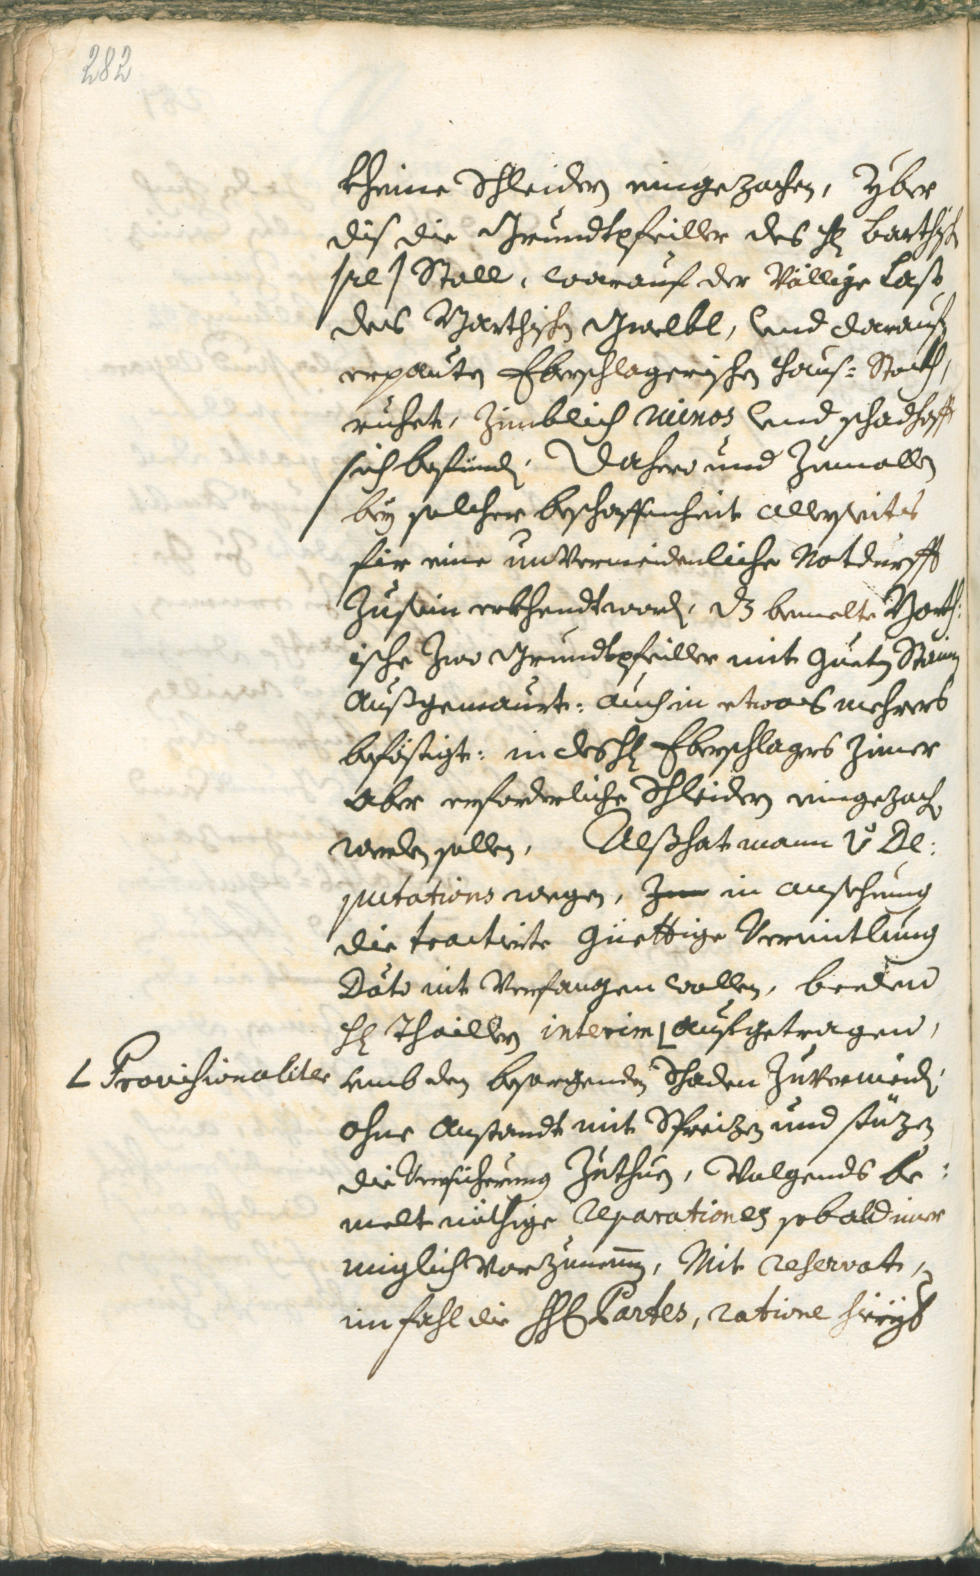 282
kheine Schleidern eingezochen, Yber
dis die Grundtpfeiller des H: Barthisch
Stall, worauf der Völlige Last
des Barthisch Gwelbl, vnd darauf
erpauten Eberschlagerischen Hauß: Stockh,
ruhet, Zimblich ruinos vnd schadhafft
sich befündt. Dahero und Zumallen
bey solcher beschaffenheit allerseits
für eine unVermeidenliche Notdurfft
Zusein erkhendt word, dz bemelte Barth:
ische Zwo Grundtpfeiller mit Gueten Stainen
Außgemaurt: auch in etwas mehrers
beföstigt: in des H: Eberschlagers Zimer
aber erforderliche Schleidern eingezochen
werden sollen, Alß hat mann v: De:
putations wegen, in ansehung
die tractirte Güettige Vermitlung
Dato nit Verfangen wollen, beeden
H: Thaillen interim ⌊ aufgetragen,
⌊ Provisionaliter
umb den besorgenden Schaden Zuvermeiden,
ohne Anstandt mit Spreizen und stüzen
die Versicherung Zuthun, Volgends be:
melt nöthige Reparationes sobald imer
miglich Vorzunemen, Mit reservat,
im fahl die HH: Partes, ratione